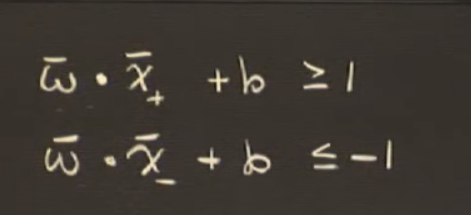 w̄ · x̄₊ + b ≥ 1
w̄ · x̄₋ + b ≤ -1